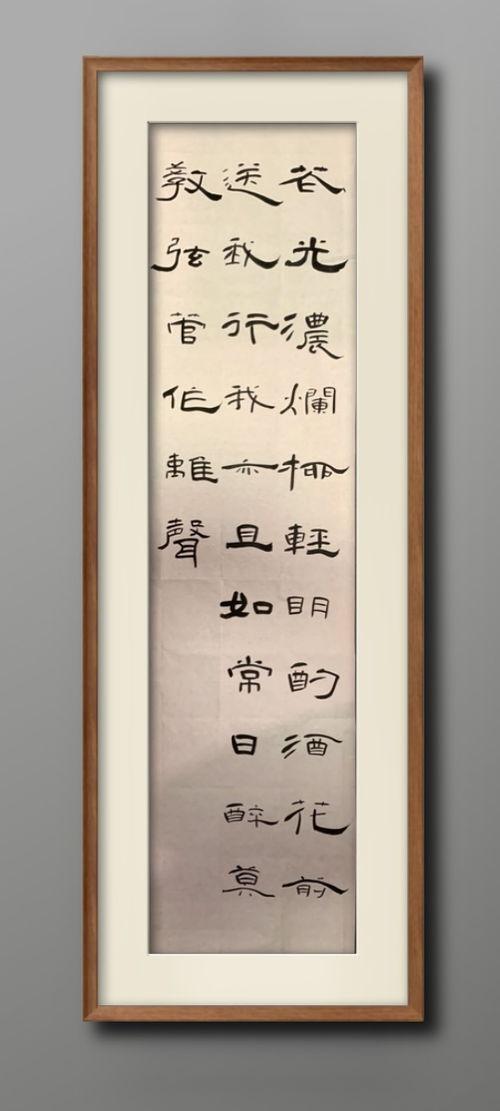 花光濃爛柳輕明酌酒花前
送我行我亦且如常日醉莫
教弦管作離聲